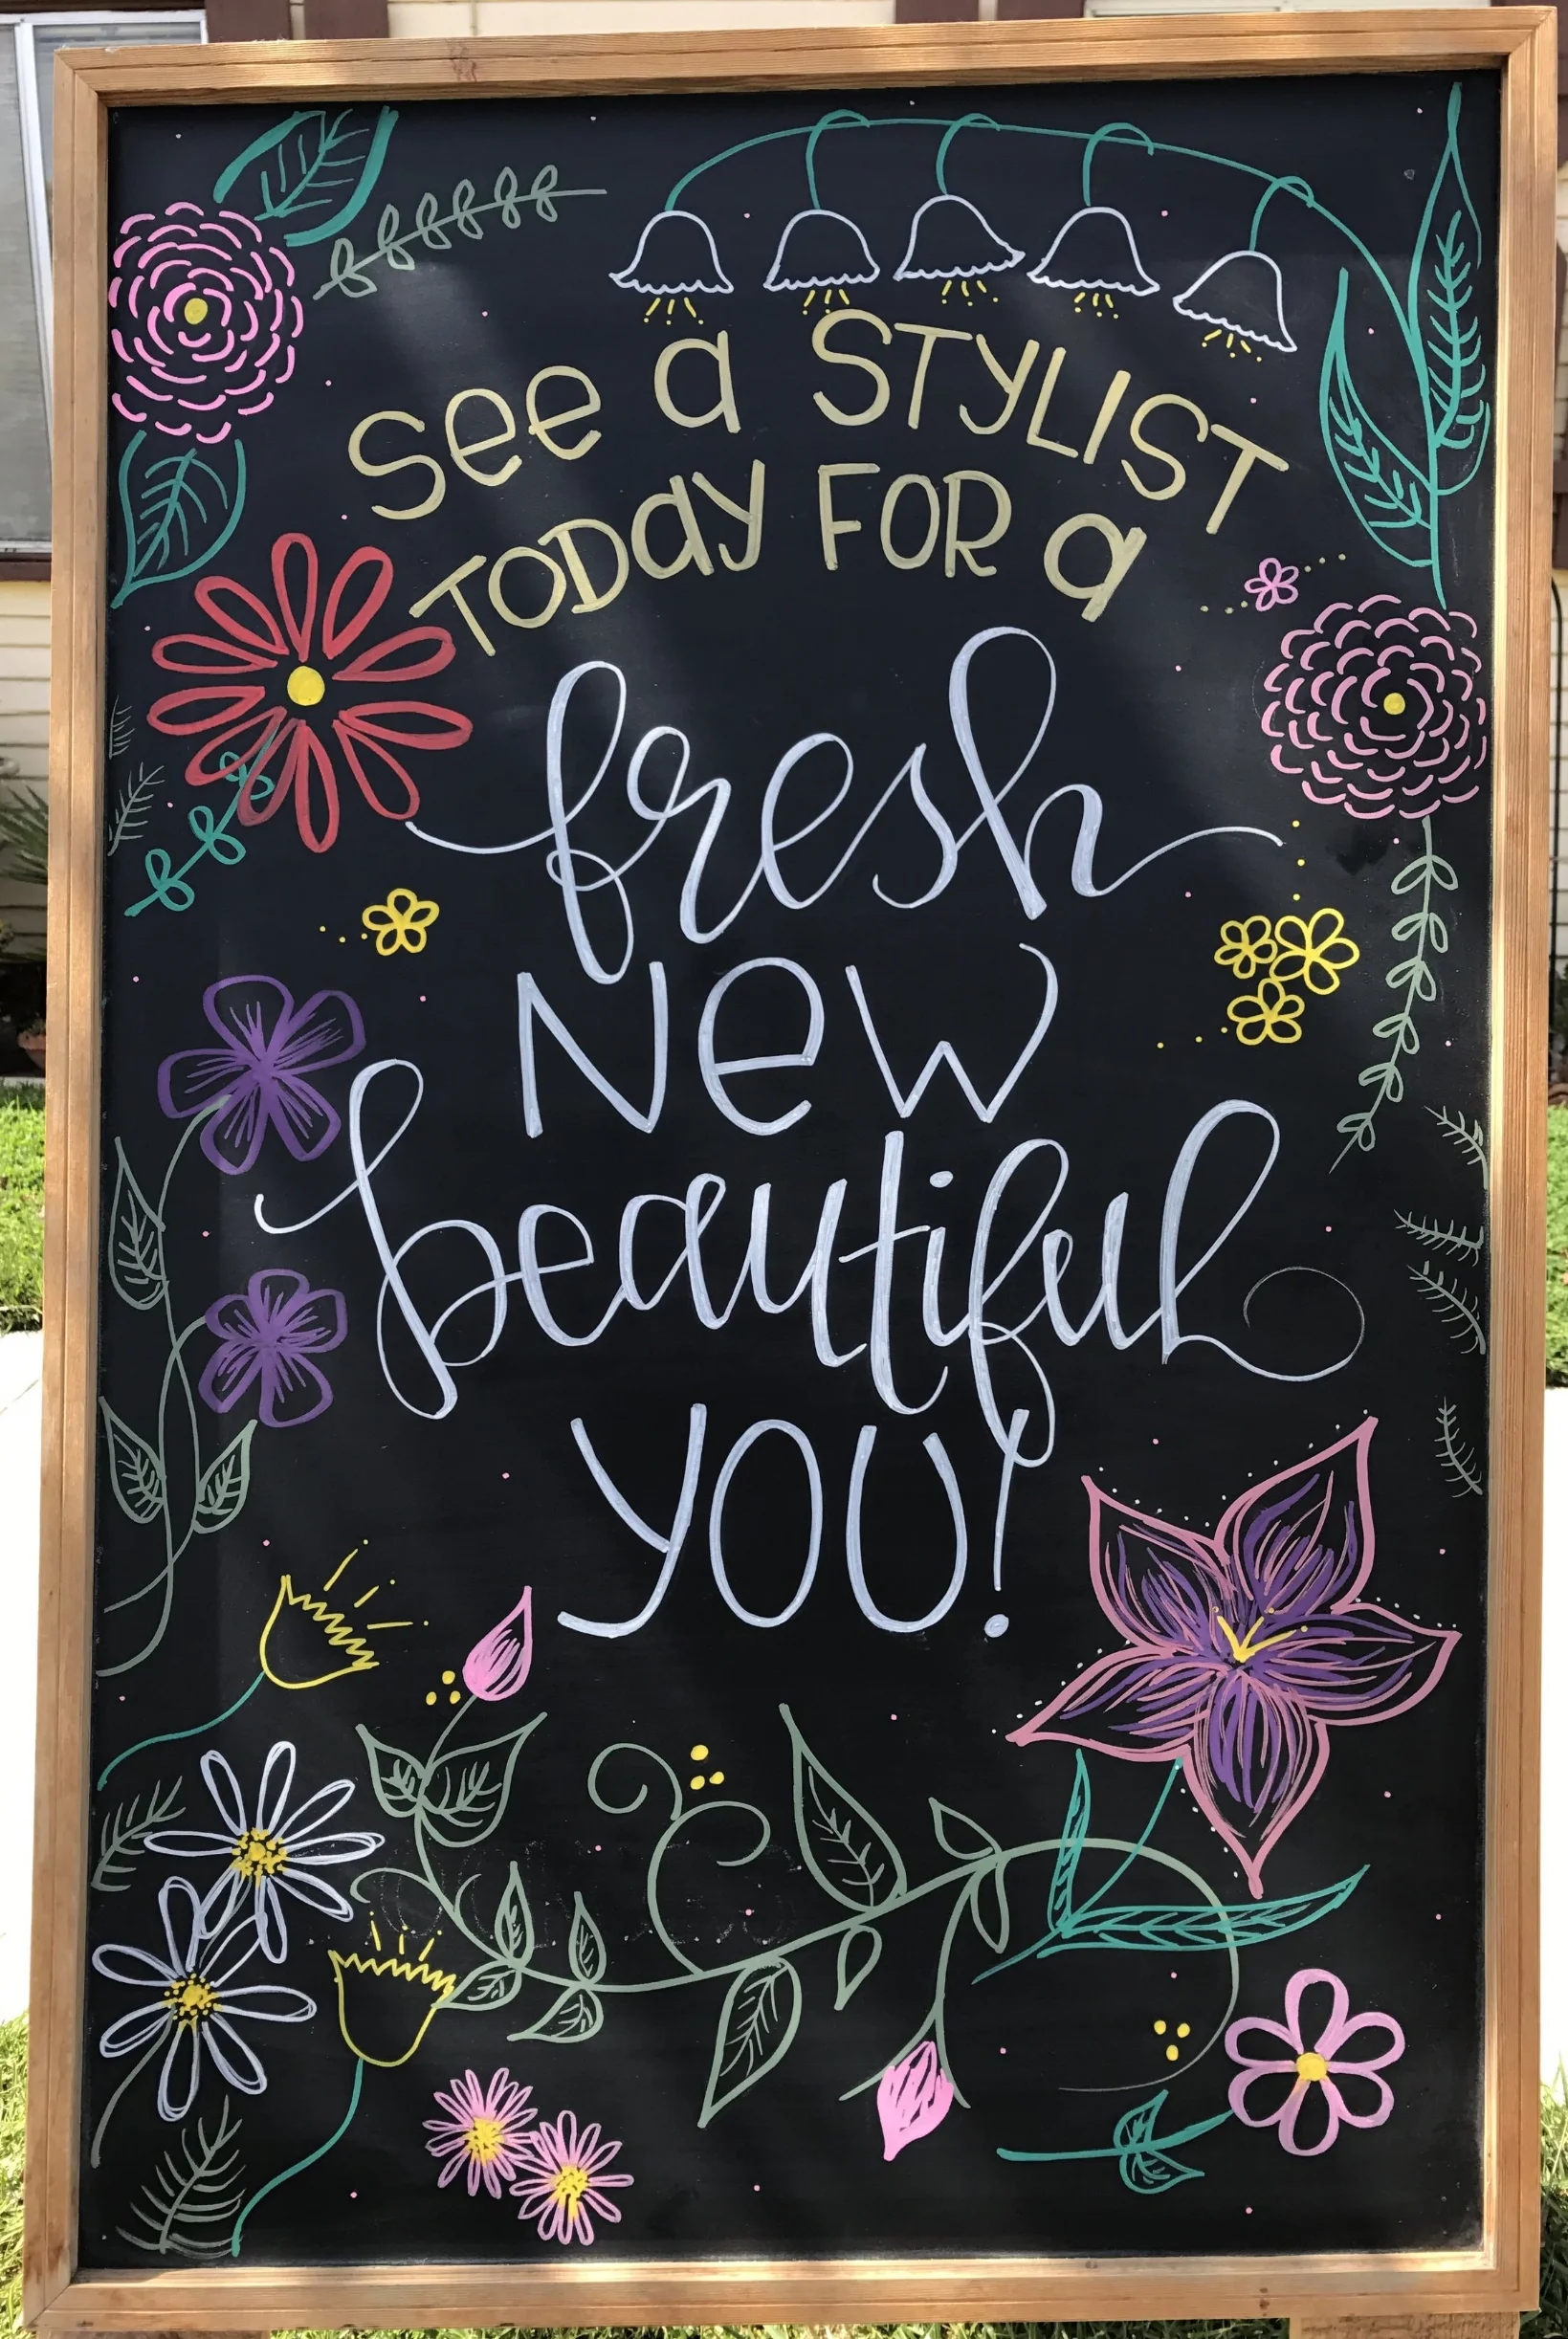 See a STYLIST
TODAY FOR a
fresh
New
beautiful
YOU!